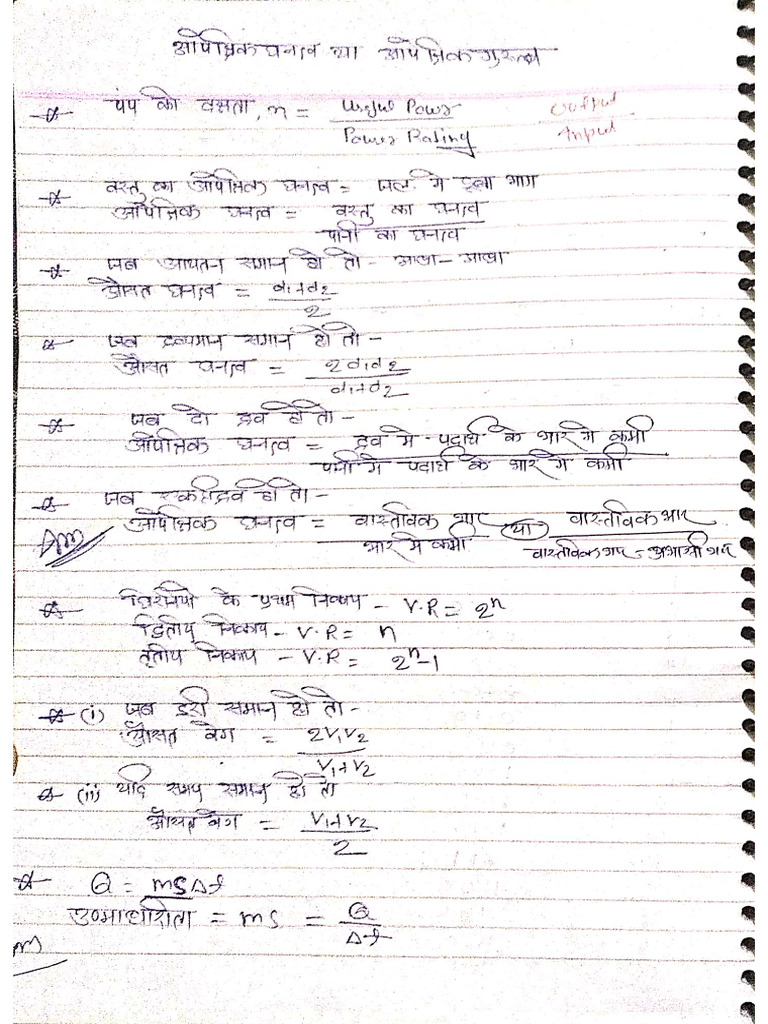 आपेक्षिक घनत्व या आपेक्षिक गुरुत्व
पंप की दक्षता, η = Useful Power / Power Rating Output / Input
वस्तु का आपेक्षिक घनत्व = जल में डूबा भाग
आपेक्षिक घनत्व = वस्तु का घनत्व / पानी का घनत्व
जब आयतन समान हो तो - आधा-आधा
औसत घनत्व = d1+d2 / 2
जब द्रव्यमान समान हो तो -
औसत घनत्व = 2d1d2 / d1+d2
जब दो द्रव हो तो -
आपेक्षिक घनत्व = द्रव में पदार्थ के भार में कमी / पानी में पदार्थ के भार में कमी
जब एक ही द्रव हो तो -
आपेक्षिक घनत्व = वास्तविक भार / भार में कमी (या) वास्तविक भार / वास्तविक भार - आभासी भार
घिरनियों के प्रथम निकाय - V.R = 2^n
द्वितीय निकाय - V.R = n
तृतीय निकाय - V.R = 2^n-1
(i) जब दूरी समान हो तो -
औसत वेग = 2V1V2 / V1+V2
(ii) यदि समय समान हो तो
औसत वेग = V1+V2 / 2
Q = msΔt
उष्माधारिता = ms = Q / Δt